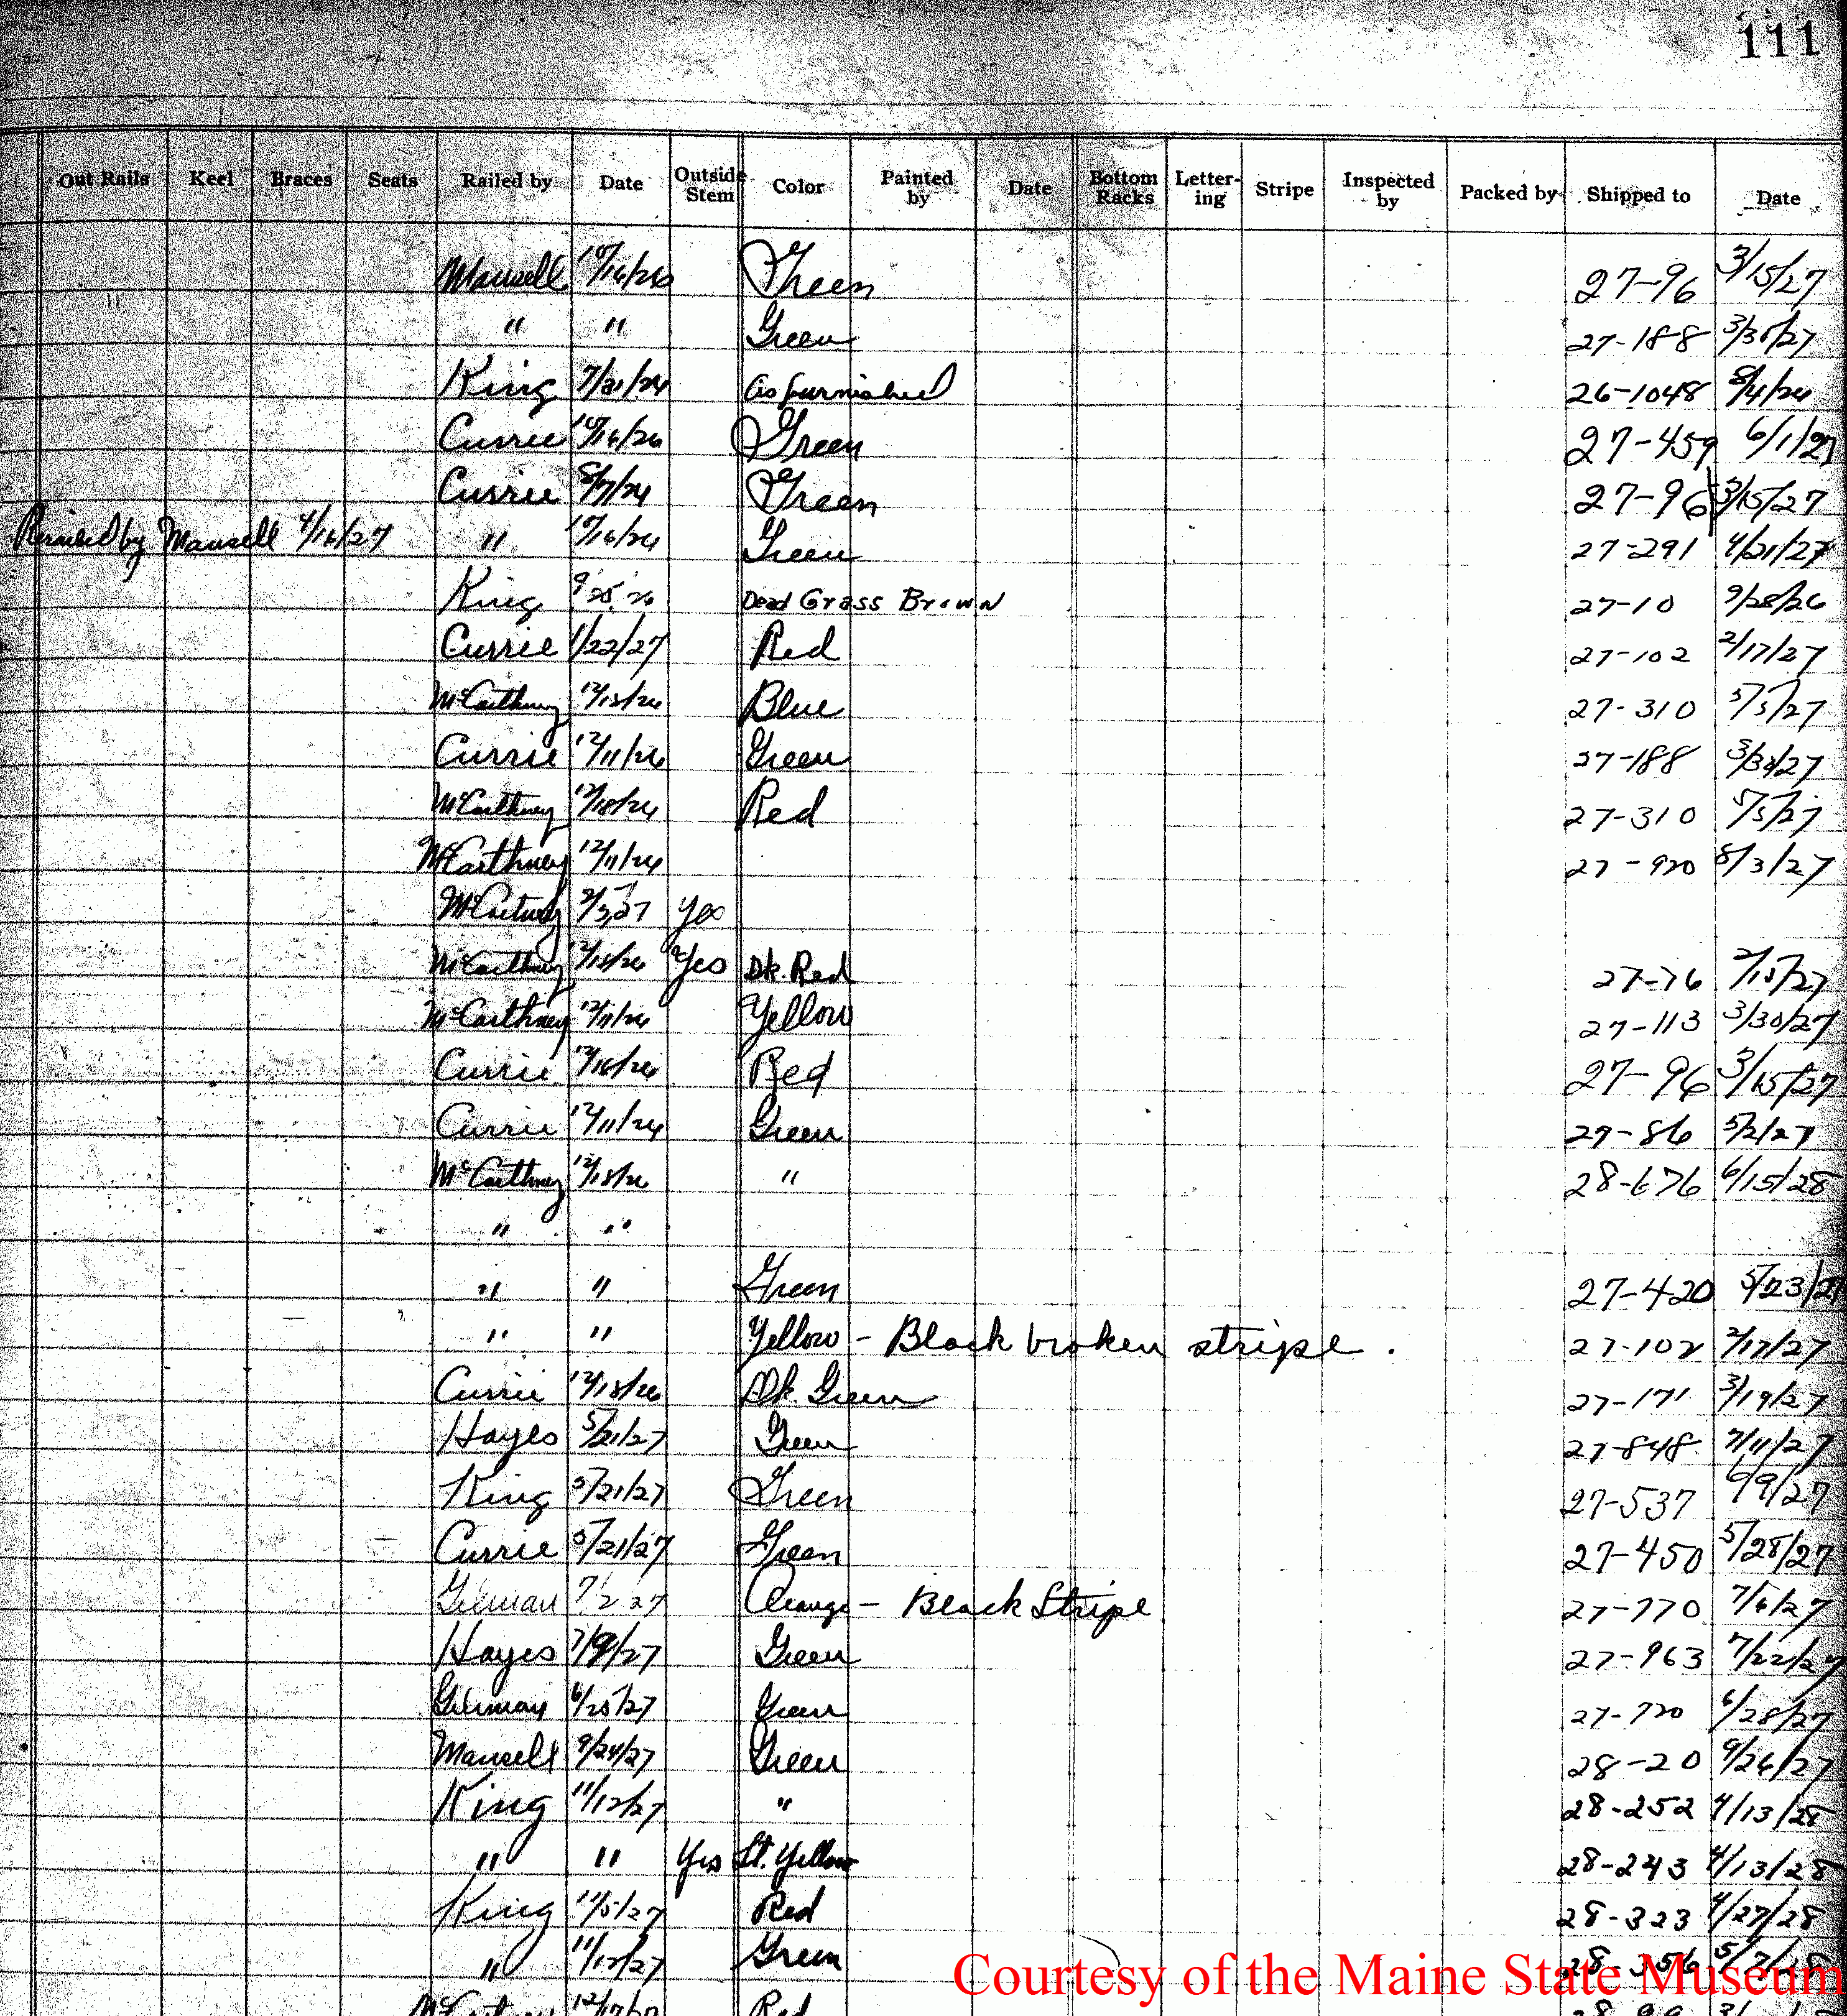 111
Out Rails Keel Braces Seats Railed by Date Outside Stem Color Painted by Date Bottom Racks Letter-ing Stripe Inspected by Packed by Shipped to Date
Mansell 10/16/26 Green 27-96 3/15/27
" " Green 27-188 3/30/27
King 7/31/26 As furnished 26-1048 8/4/26
Currie 10/16/26 Green 27-459 6/1/27
Currie 8/7/26 Green 27-96 3/15/27
Rerailed by Mansell 4/16/27 " 10/16/26 Green 27-291 4/21/27
King 9 25 26 Dead Grass Brown 27-10 9/28/26
Currie 1/22/27 Red 27-102 2/17/27
McCarthney 12/18/26 Blue 27-310 5/5/27
Currie 12/11/26 Green 27-188 3/30/27
McCarthney 12/18/26 Red 27-310 5/5/27
McCarthney 12/11/26 27-920 8/3/27
McCartney Yes
McCarthney 12/18/26 Yes Dk. Red 27-76 2/15/27
McCarthney 12/11/26 Yellow 27-113 3/30/27
Currie 12/18/26 Red 27-96 3/15/27
Currie 12/11/26 Green 27-86 5/2/27
McCarthney 12/18/26 " 28-676 6/15/28
" "
" " Green 27-420 5/23/27
" " Yellow - Black broken stripe. 27-102 2/17/27
Currie 12/18/26 Dk. Green 27-171 3/19/27
Hayes 5/21/27 Green 27-848 7/11/27
King 5/21/27 Green 27-537 6/9/27
Currie 5/21/27 Green 27-450 5/28/27
Gilman 7 2 27 Orange - Black Stripe 27-770 7/6/27
Hayes 7/9/27 Green 27-963 7/22/27
Gilman 6/25/27 Green 27-720 6/28/27
Mansell 9/24/27 Green 28-20 9/26/27
King 11/12/27 " 28-252 4/13/28
" " Yes Lt. Yellow 28-243 4/13/28
King 11/5/27 Red 28-323 4/27/28
" 11/12/27 Green 28-356 5/7/28
Red
Courtesy of the Maine State Museum